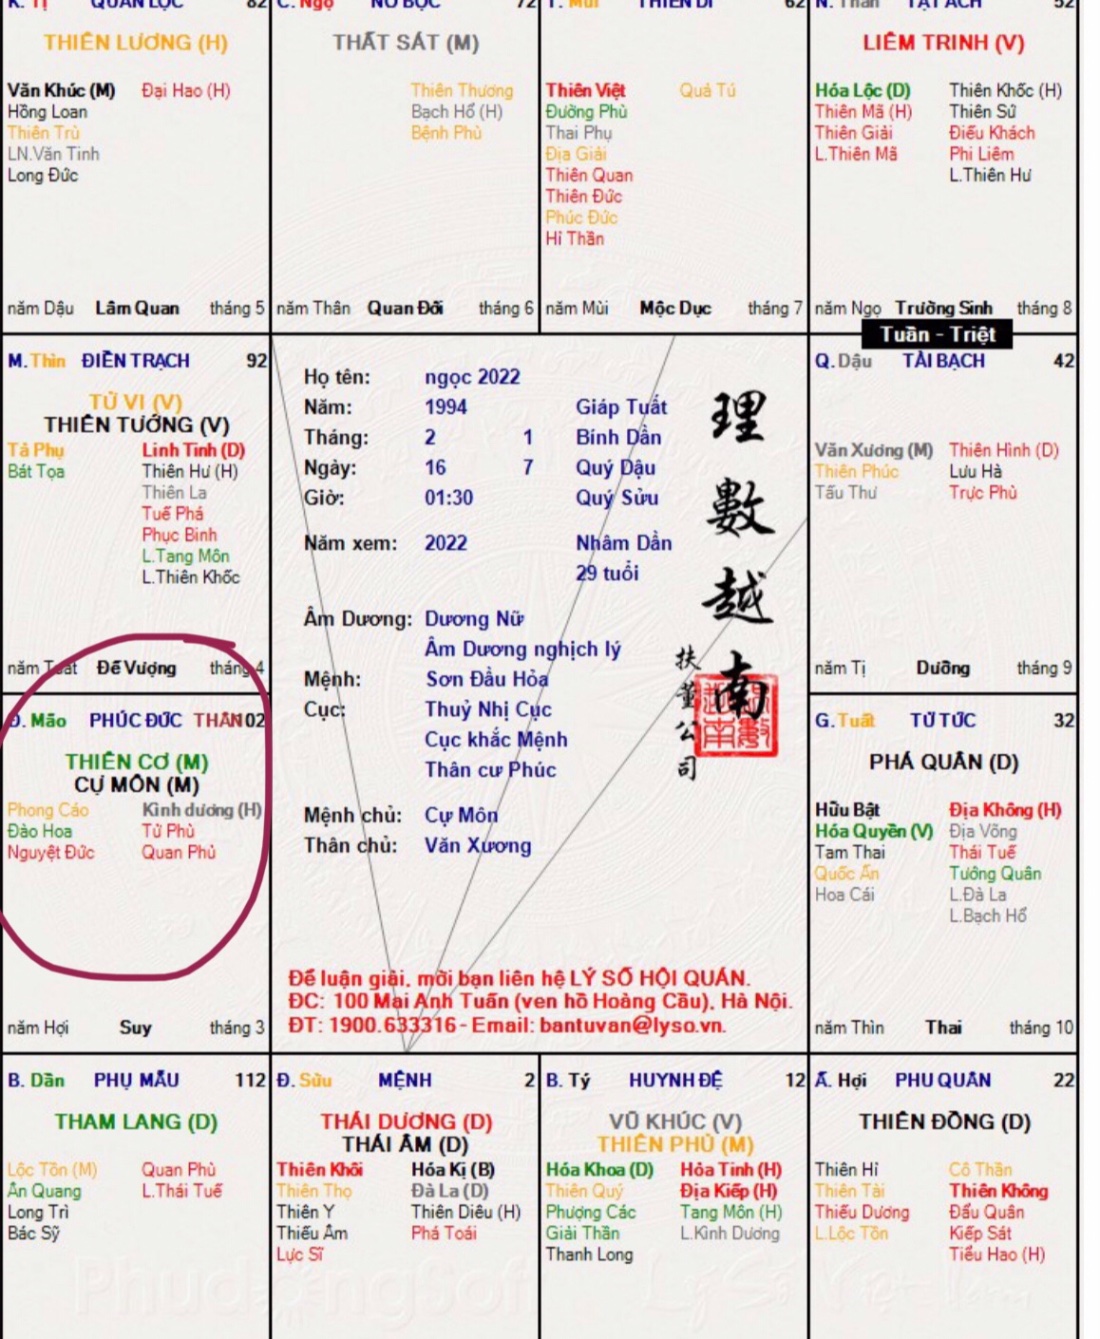 K. Tị QUAN LỘC 82
THIÊN LƯƠNG (H)
Văn Khúc (M) Đại Hao (H)
Hồng Loan
Thiên Trù
LN.Văn Tinh
Long Đức
năm Dậu Lâm Quan tháng 5
C. Ngọ NÔ BỘC 72
THẤT SÁT (M)
Thiên Thương
Bạch Hổ (H)
Bệnh Phù
năm Thân Quan Đới tháng 6
T. Mùi THIÊN DI 62
Thiên Việt Quả Tú
Đường Phù
Thai Phụ
Địa Giải
Thiên Quan
Thiên Đức
Phúc Đức
Hỉ Thần
năm Mùi Mộc Dục tháng 7
N. Thân TẬT ÁCH 52
LIÊM TRINH (V)
Hóa Lộc (D) Thiên Khốc (H)
Thiên Mã (H) Thiên Sứ
Thiên Giải Điếu Khách
L.Thiên Mã Phi Liêm
L.Thiên Hư
năm Ngọ Trường Sinh tháng 8
Tuần - Triệt
M. Thìn ĐIỀN TRẠCH 92
TỬ VI (V)
THIÊN TƯỚNG (V)
Tả Phụ Linh Tinh (D)
Bát Tọa Thiên Hư (H)
Thiên La
Tuế Phá
Phục Binh
L.Tang Môn
L.Thiên Khốc
năm Tuất Đế Vượng tháng 4
Họ tên: ngọc 2022
Năm: 1994 Giáp Tuất
Tháng: 2 1 Bính Dần
Ngày: 16 7 Quý Dậu
Giờ: 01:30 Quý Sửu
Năm xem: 2022 Nhâm Dần
29 tuổi
Âm Dương: Dương Nữ
Âm Dương nghịch lý
Mệnh: Sơn Đầu Hỏa
Cục: Thuỷ Nhị Cục
Cục khắc Mệnh
Thân cư Phúc
Mệnh chủ: Cự Môn
Thân chủ: Văn Xương
理數越南
扶董公司
Để luận giải, mời bạn liên hệ LÝ SỐ HỘI QUÁN.
ĐC: 100 Mai Anh Tuấn (ven hồ Hoàng Cầu), Hà Nội.
ĐT: 1900.633316 - Email: bantuvan@lyso.vn.
Q. Dậu TÀI BẠCH 42
Văn Xương (M) Thiên Hình (D)
Thiên Phúc Lưu Hà
Tấu Thư Trực Phù
năm Tị Dưỡng tháng 9
Đ. Mão PHÚC ĐỨC THÂN 02
THIÊN CƠ (M)
CỰ MÔN (M)
Phong Cáo Kình dương (H)
Đào Hoa Tử Phù
Nguyệt Đức Quan Phủ
năm Hợi Suy tháng 3
G. Tuất TỬ TỨC 32
PHÁ QUÂN (D)
Hữu Bật Địa Không (H)
Hóa Quyền (V) Địa Võng
Tam Thai Thái Tuế
Quốc Ấn Tướng Quân
Hoa Cái L.Đà La
L.Bạch Hổ
năm Thìn Thai tháng 10
B. Dần PHỤ MẪU 112
THAM LANG (D)
Lộc Tồn (M) Quan Phù
Ân Quang L.Thái Tuế
Long Trì
Bác Sỹ
Đ. Sửu MỆNH 2
THÁI DƯƠNG (D)
THÁI ÂM (D)
Thiên Khôi Hóa Kị (B)
Thiên Thọ Đà La (D)
Thiên Y Thiên Diêu (H)
Thiếu Âm Phá Toái
Lực Sĩ
B. Tý HUYNH ĐỆ 12
VŨ KHÚC (V)
THIÊN PHỦ (M)
Hóa Khoa (D) Hỏa Tinh (H)
Thiên Quý Địa Kiếp (H)
Phượng Các Tang Môn (H)
Giải Thần L.Kình Dương
Thanh Long
Ấ. Hợi PHU QUÂN 22
THIÊN ĐỒNG (D)
Thiên Hỉ Cô Thần
Thiên Tài Thiên Không
Thiếu Dương Đẩu Quân
L.Lộc Tồn Kiếp Sát
Tiểu Hao (H)